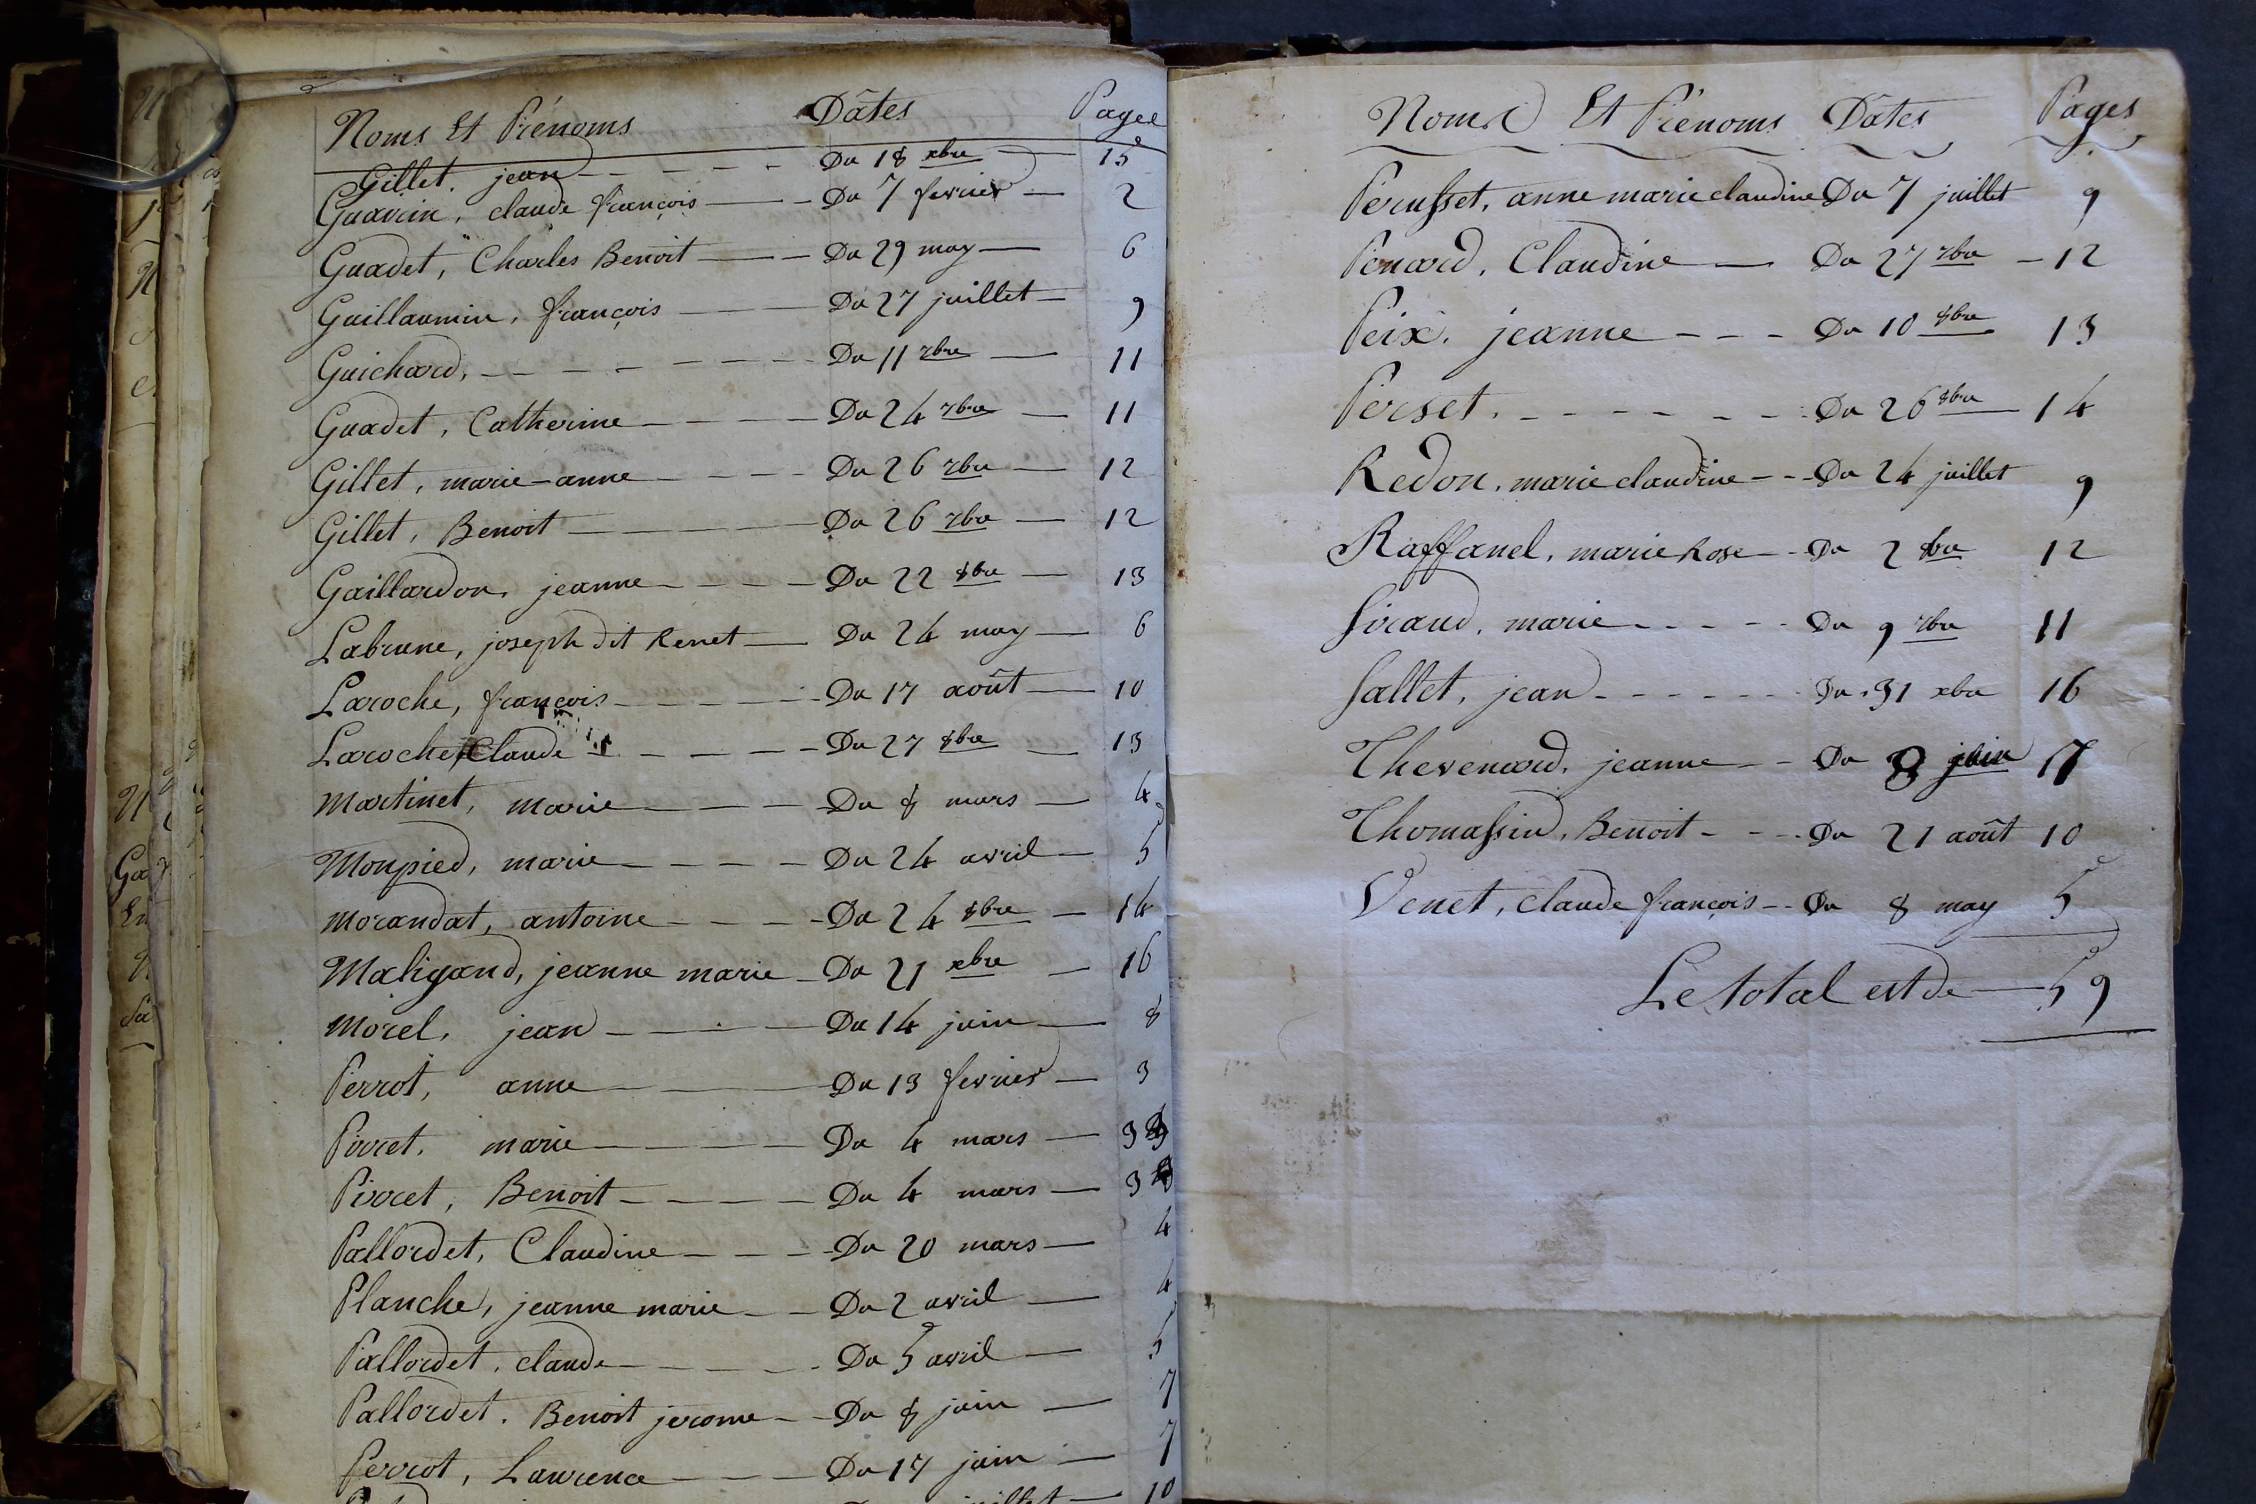 Noms Et Prénoms Dâtes Pages
Gillet, jean Du 18 xbre 15
Guarin, claude françois Du 7 fevrier 2
Guadet, Charles Benoit Du 29 may 6
Guillaumin, françois Du 27 juillet 9
Guichard, Du 11 7bre 11
Guadet, Catherine Du 24 7bre 11
Gillet, marie-anne Du 26 7bre 12
Gillet, Benoit Du 26 7bre 12
Gaillardon, jeanne Du 22 8bre 13
Labrune, joseph dit Renet Du 24 may 6
Laroche, françois Du 17 août 10
Laroche, Claude Du 27 8bre 13
Martinet, marie Du 8 mars 4
Monpied, marie Du 24 avril 5
Morandat, antoine Du 24 8bre 14
Maligand, jeanne marie Du 21 xbre 16
Morel, jean Du 14 juin 8
Perrot, anne Du 13 fevrier 3
Pivret, marie Du 4 mars 3
Pivret, Benoit Du 4 mars 3
Pallordet, Claudine Du 20 mars 4
Planche, jeanne marie Du 2 avril 4
Pallordet, claude Du 5 avril 5
Pallordet, Benoit jerome Du 8 juin 7
Perrot, Laurence Du 17 juin 7
juillet 10
Noms Et Prénoms Dâtes Pages
Perusset, anne marie claudine Du 7 juillet 9
Penard, Claudine Du 27 7bre 12
Peix, jeanne Du 10 8bre 13
Perset, Du 26 8bre 14
Redon, marie claudine Du 24 juillet 9
Raffanel, marie Rose Du 2 8bre 12
Siraud, marie Du 9 7bre 11
Sallet, jean Du 31 xbre 16
Thevenard, jeanne Du 8 juin 7
Thomassin, Benoit Du 21 août 10
Venet, claude françois Du 8 may 5
Le total est de 59